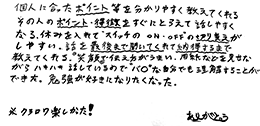 個人に合ったポイント等を分かりやすく教えてくれる
その人のポイント・得意をすぐにとらえて話しやすく
なる。休みを入れて"スイッチのON・OFFの切り替えが
しやすい。話を最後まで聞いてくれて納得するまで
教えてくれる。"笑顔で伝え方がうまい。用紙などを見せな
がらハキハキ話しているので"バカ"な自分でも理解することが
できた。勉強が好きになりたくなった。
※クチコワ楽しかった!
ありがとう